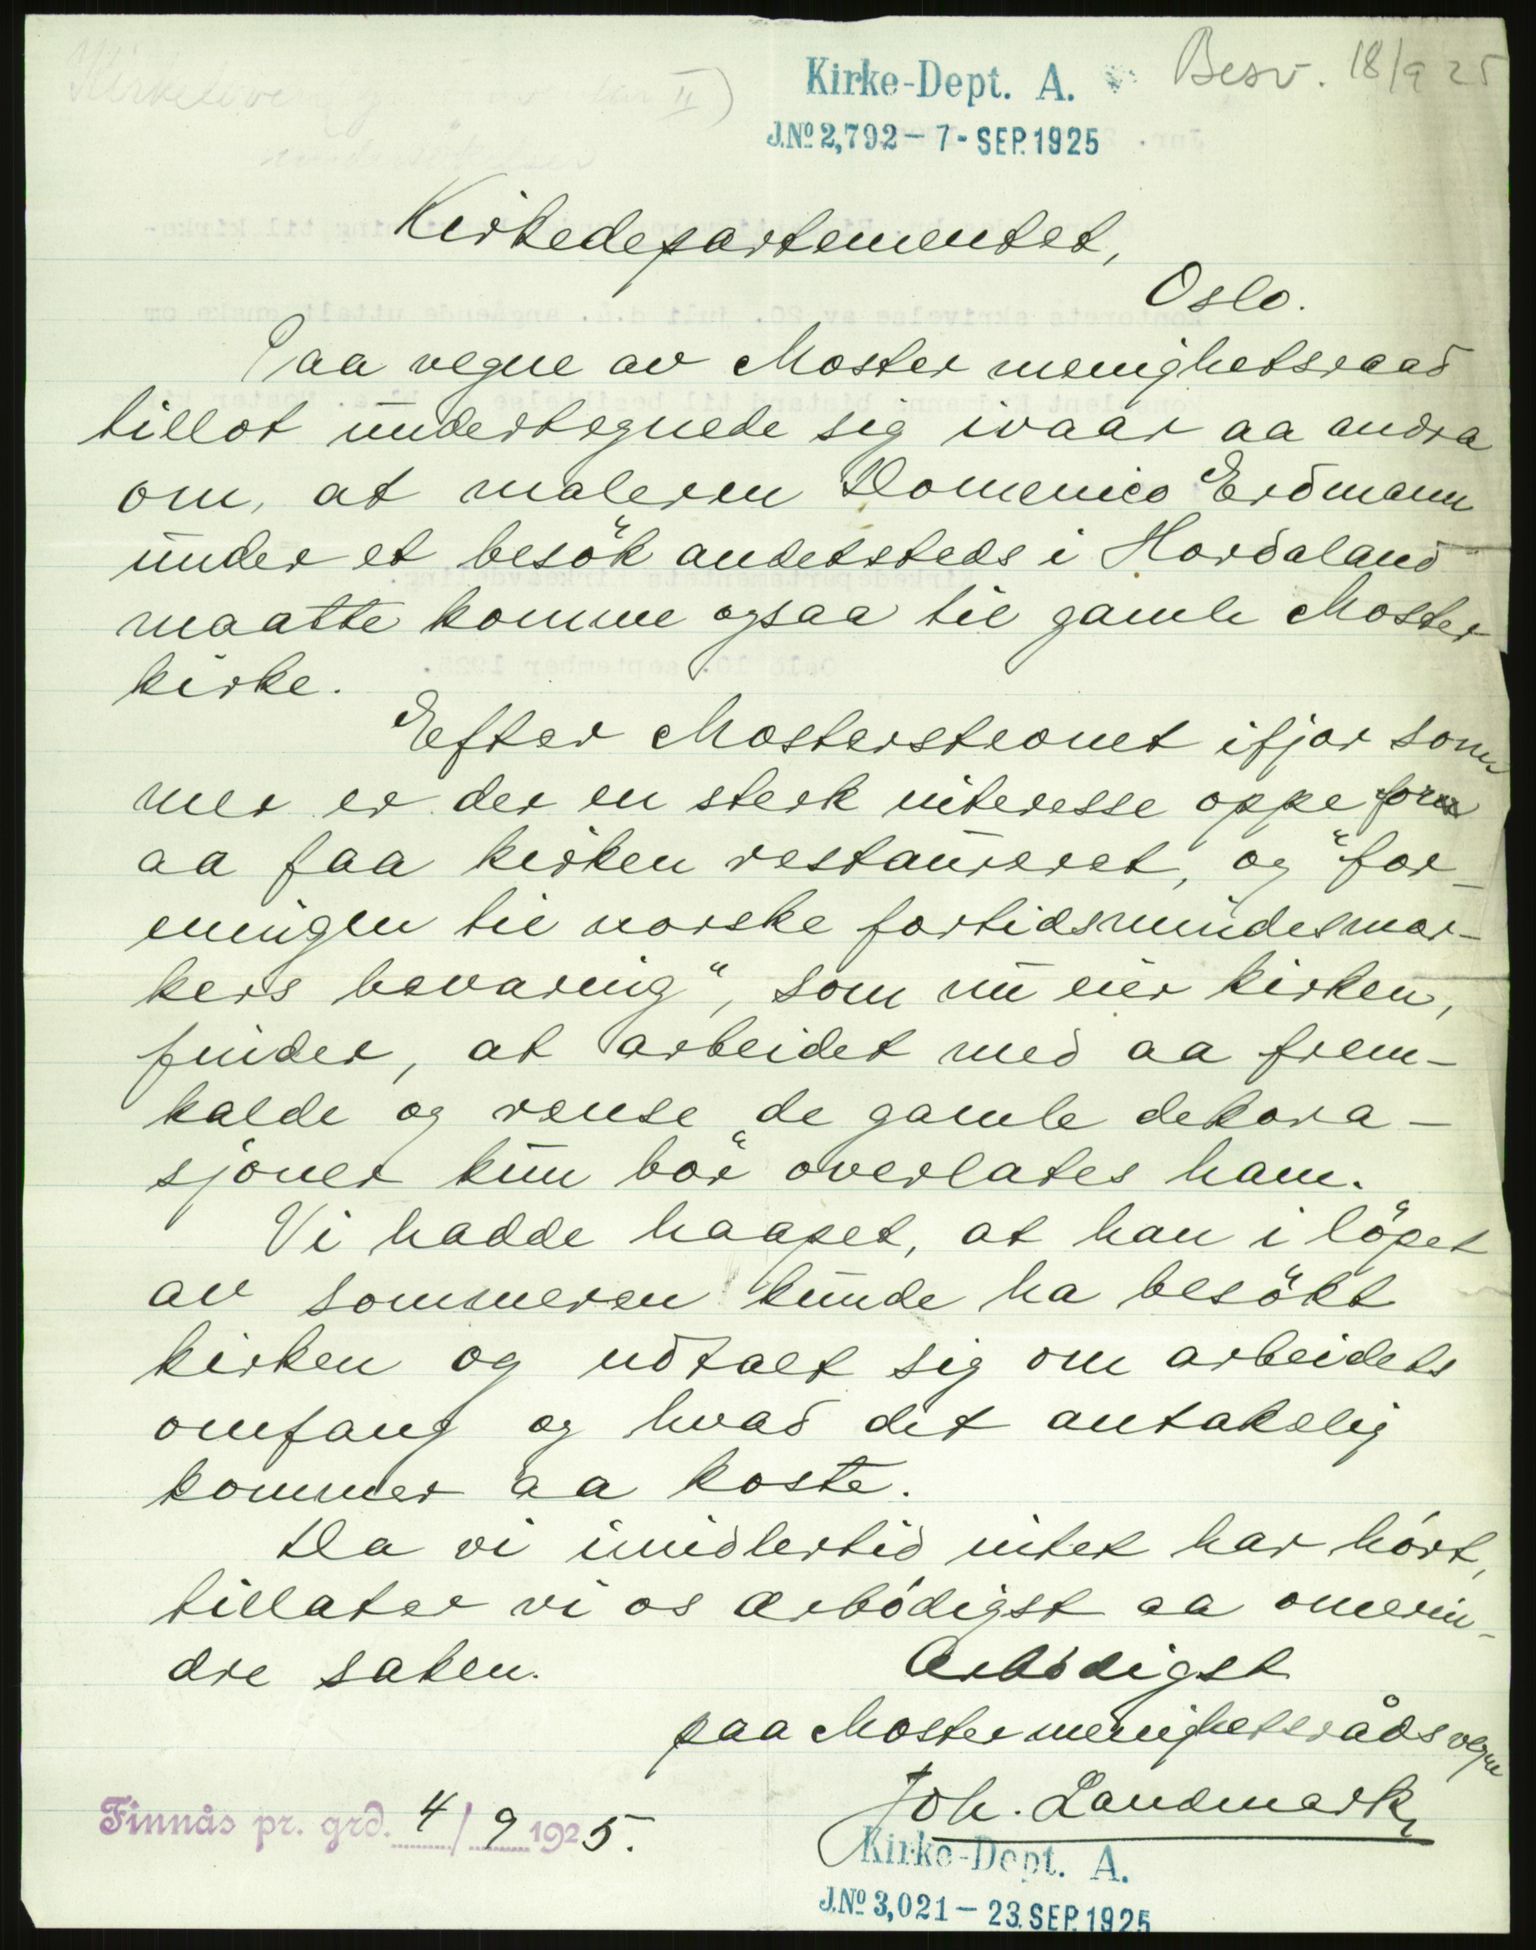 Kirke-Dept. A.
Besv. 18/9 25
J.No 2,792 - 7 - SEP. 1925
Kirkedepartementet,
Oslo.
Paa vegne av Moster menighetsraad
tillot undertegnede sig ivaar aa andra
om, at maleren Domenico Erdmann
under et besök andetsteds i Hordaland
maatte komme ogsaa til gamle Moster
kirke.
Efter Mosterstevnet ifjor som
mer er der en sterk interesse oppe for
aa faa kirken restaureret, og "for-
eningen til norske fortidsmindesmær-
kers bevaring", som nu eier kirken,
finder, at arbeidet med aa frem-
kalde og rense de gamle dekora-
sjoner kun bör overlates ham.
Vi hadde haapet, at han i löpet
av sommeren kunde ha besökt
kirken og udtalt sig om arbeidets
omfang og hvad det antakelig
kommer aa koste.
Da vi imidlertid intet har hört,
tillater vi os ærbödigst aa omerin-
dre saken.
Ærbödigst
paa Moster menighetsråds vegne
Joh. Landmark
Finnås pr. grd. 4/9 1925.
Kirke-Dept. A.
J.No 3,021 - 23. SEP. 1925